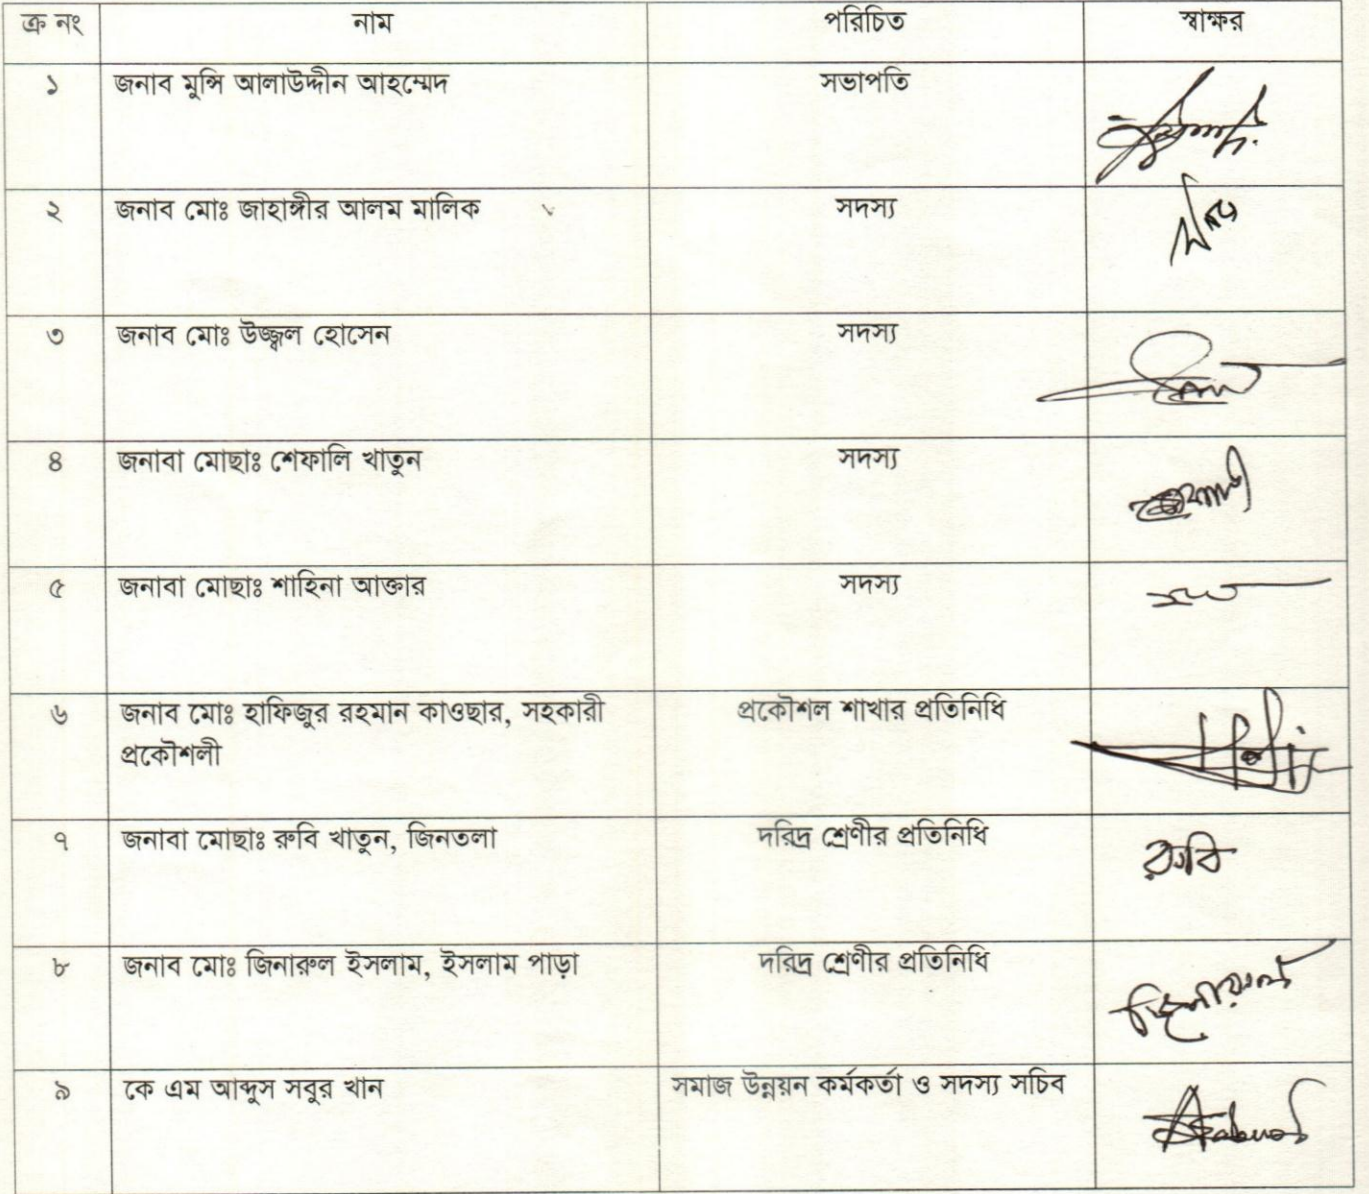 ক্র নং নাম পরিচিত স্বাক্ষর
১ জনাব মুন্সি আলাউদ্দীন আহম্মেদ সভাপতি
২ জনাব মোঃ জাহাঙ্গীর আলম মালিক সদস্য
৩ জনাব মোঃ উজ্জ্বল হোসেন সদস্য
৪ জনাবা মোছাঃ শেফালি খাতুন সদস্য
৫ জনাবা মোছাঃ শাহিনা আক্তার সদস্য
৬ জনাব মোঃ হাফিজুর রহমান কাওছার, সহকারী প্রকৌশল শাখার প্রতিনিধি
প্রকৌশলী
৭ জনাবা মোছাঃ রুবি খাতুন, জিনতলা দরিদ্র শ্রেণীর প্রতিনিধি রুবি
৮ জনাব মোঃ জিনারুল ইসলাম, ইসলাম পাড়া দরিদ্র শ্রেণীর প্রতিনিধি
৯ কে এম আব্দুস সবুর খান সমাজ উন্নয়ন কর্মকর্তা ও সদস্য সচিব